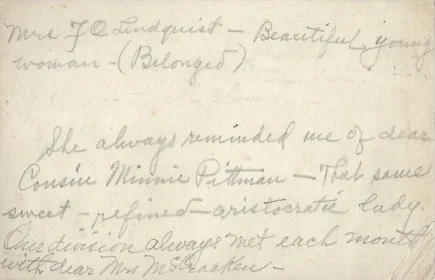 Mrs F O Lindquist — Beautiful, young
woman — (Belonged)
She always reminded me of dear
Cousin Minnie Pittman — That same
sweet — refined — aristocratic lady.
Our division always met each month
with dear Mrs McCracken —